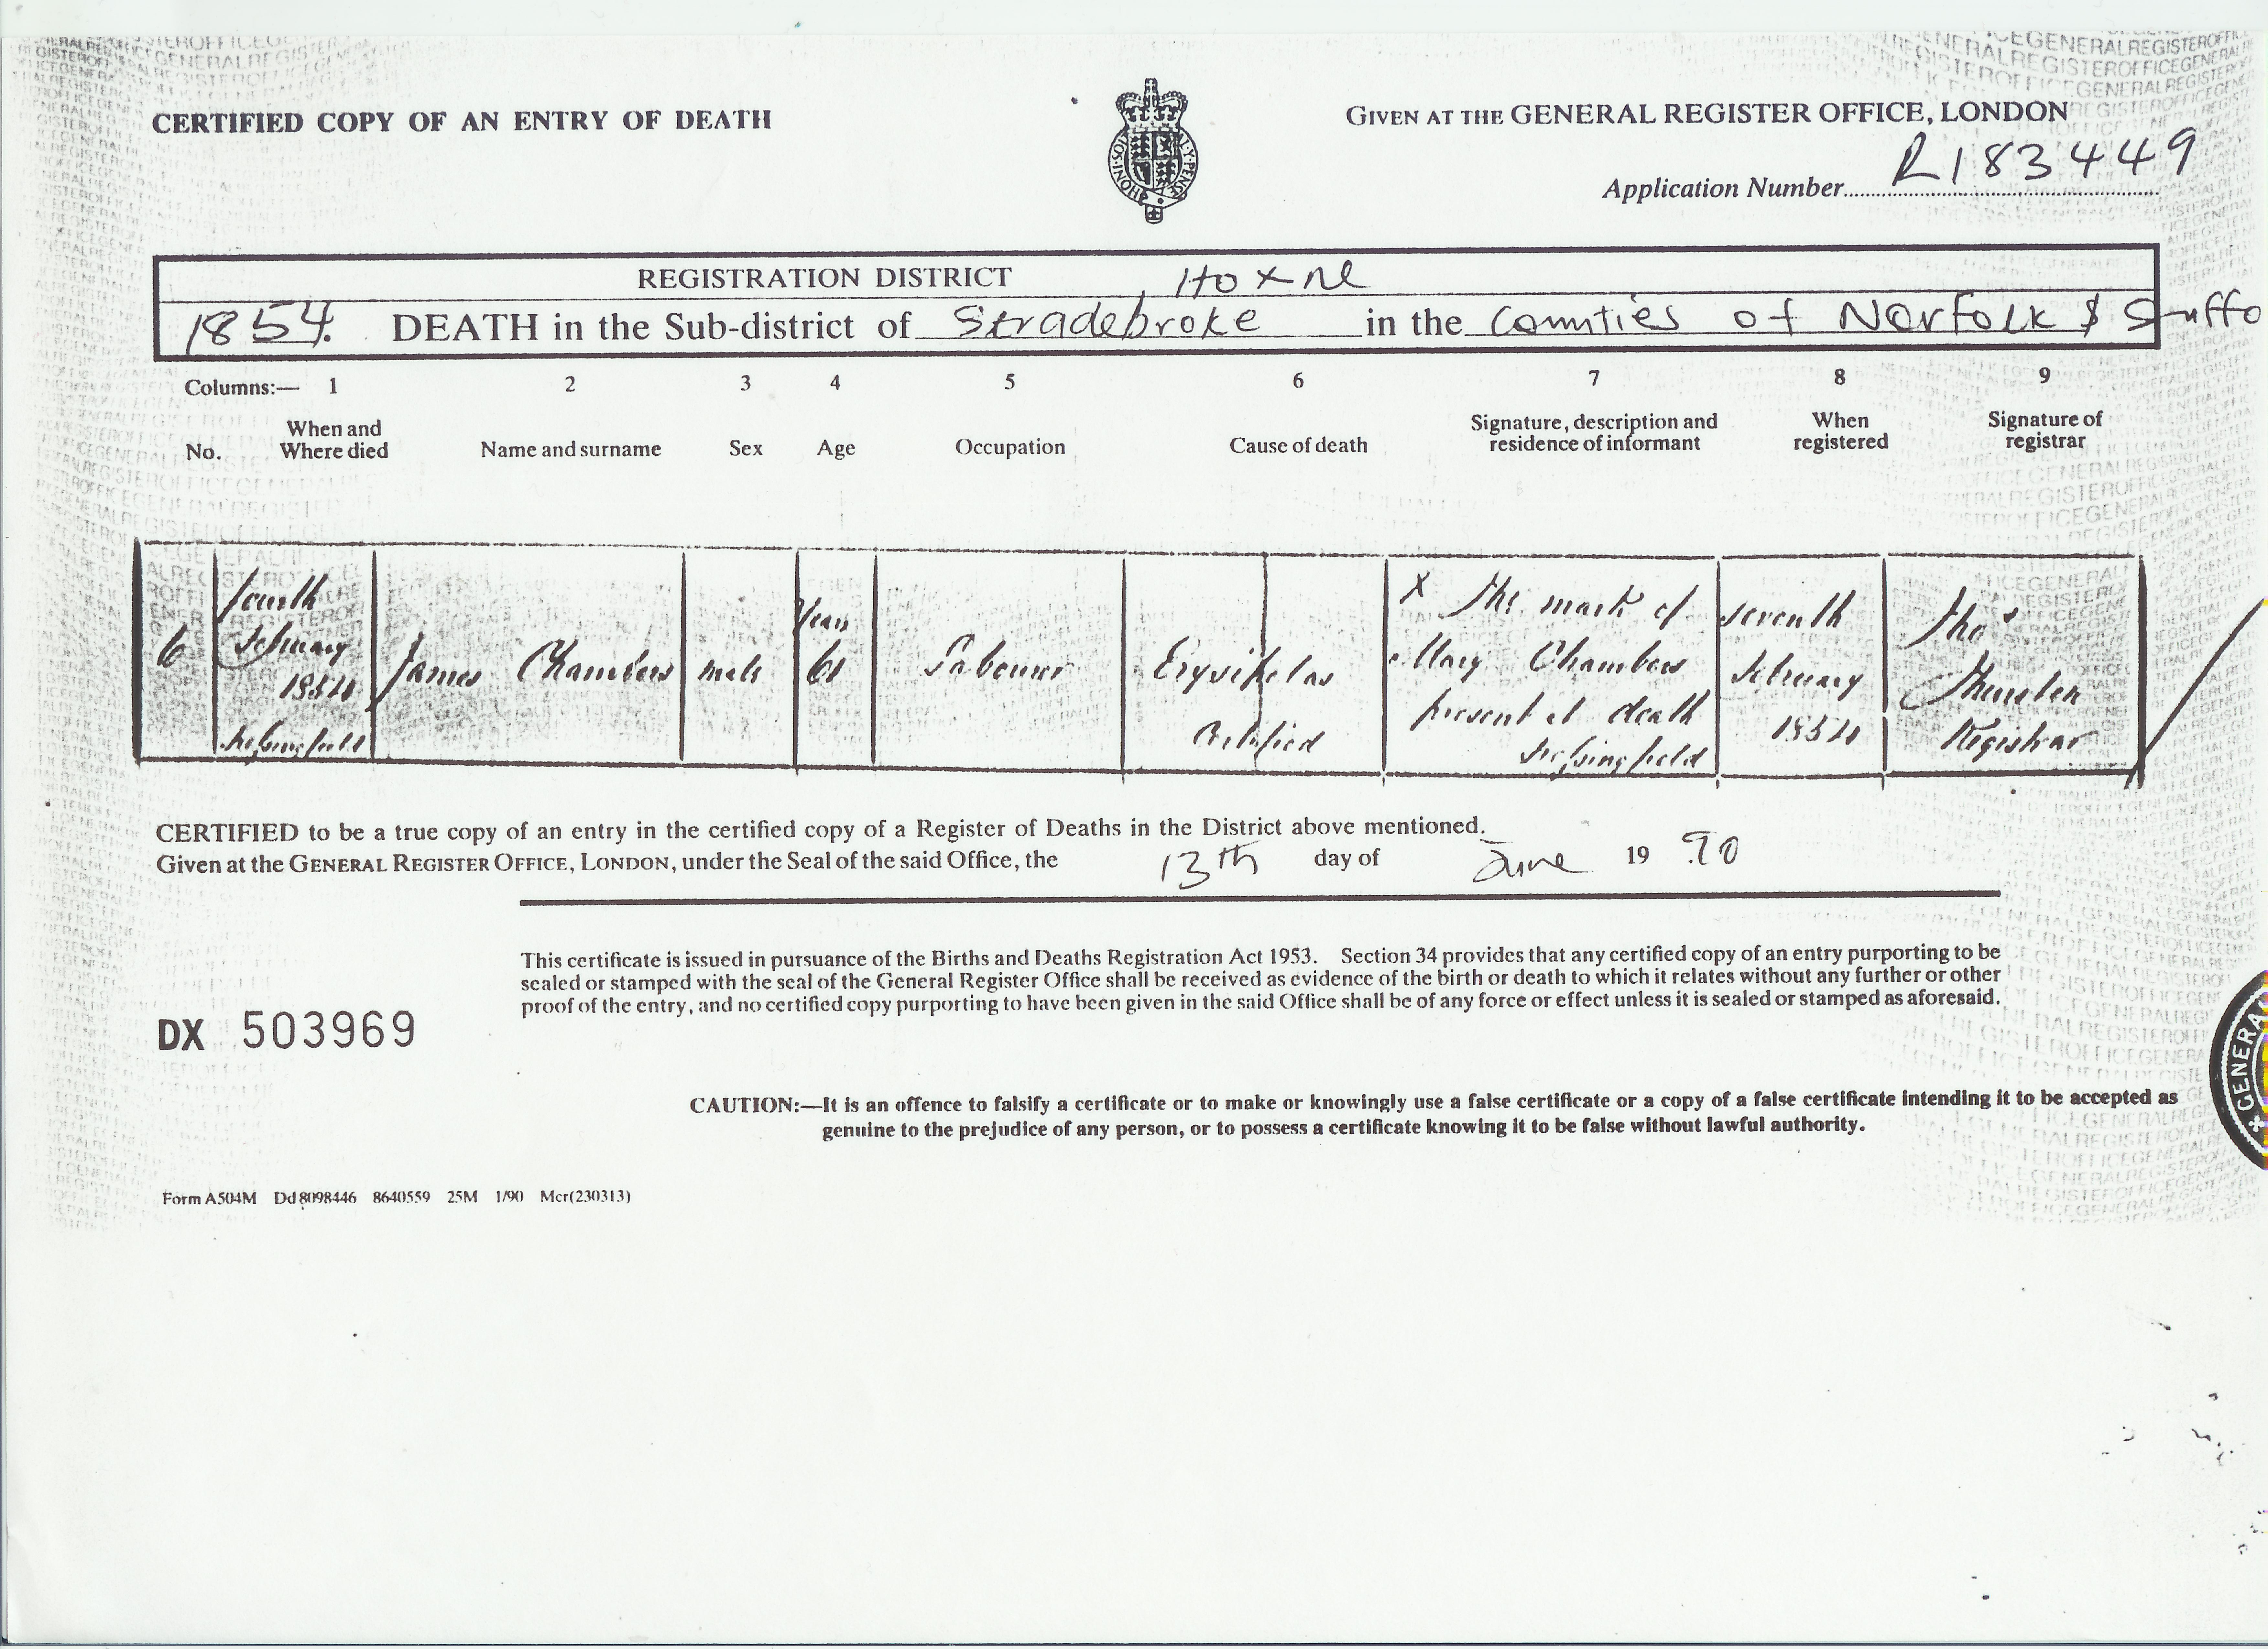 CERTIFIED COPY OF AN ENTRY OF DEATH
GIVEN AT THE GENERAL REGISTER OFFICE, LONDON
Application Number R183449
REGISTRATION DISTRICT Hoxne
1854. DEATH in the Sub-district of Stradebroke in the Counties of Norfolk & Suffo
Columns:— 1 2 3 4 5 6 7 8 9
No. When and Where died Name and surname Sex Age Occupation Cause of death Signature, description and residence of informant When registered Signature of registrar
6
fourth
February
1854
James Chambers
male
Years
61
Labourer
Erysipelas
Certified
X The mark of
Mary Chambers
present at death
seventh
February
1854
Thos
Thurston
Registrar
CERTIFIED to be a true copy of an entry in the certified copy of a Register of Deaths in the District above mentioned.
Given at the GENERAL REGISTER OFFICE, LONDON, under the Seal of the said Office, the 13th day of June 19 90
This certificate is issued in pursuance of the Births and Deaths Registration Act 1953. Section 34 provides that any certified copy of an entry purporting to be
sealed or stamped with the seal of the General Register Office shall be received as evidence of the birth or death to which it relates without any further or other
proof of the entry, and no certified copy purporting to have been given in the said Office shall be of any force or effect unless it is sealed or stamped as aforesaid.
DX 503969
GENERA
CAUTION:—It is an offence to falsify a certificate or to make or knowingly use a false certificate or a copy of a false certificate intending it to be accepted as
genuine to the prejudice of any person, or to possess a certificate knowing it to be false without lawful authority.
Form A504M Dd 8098446 8640559 25M 1/90 Mcr(230313)